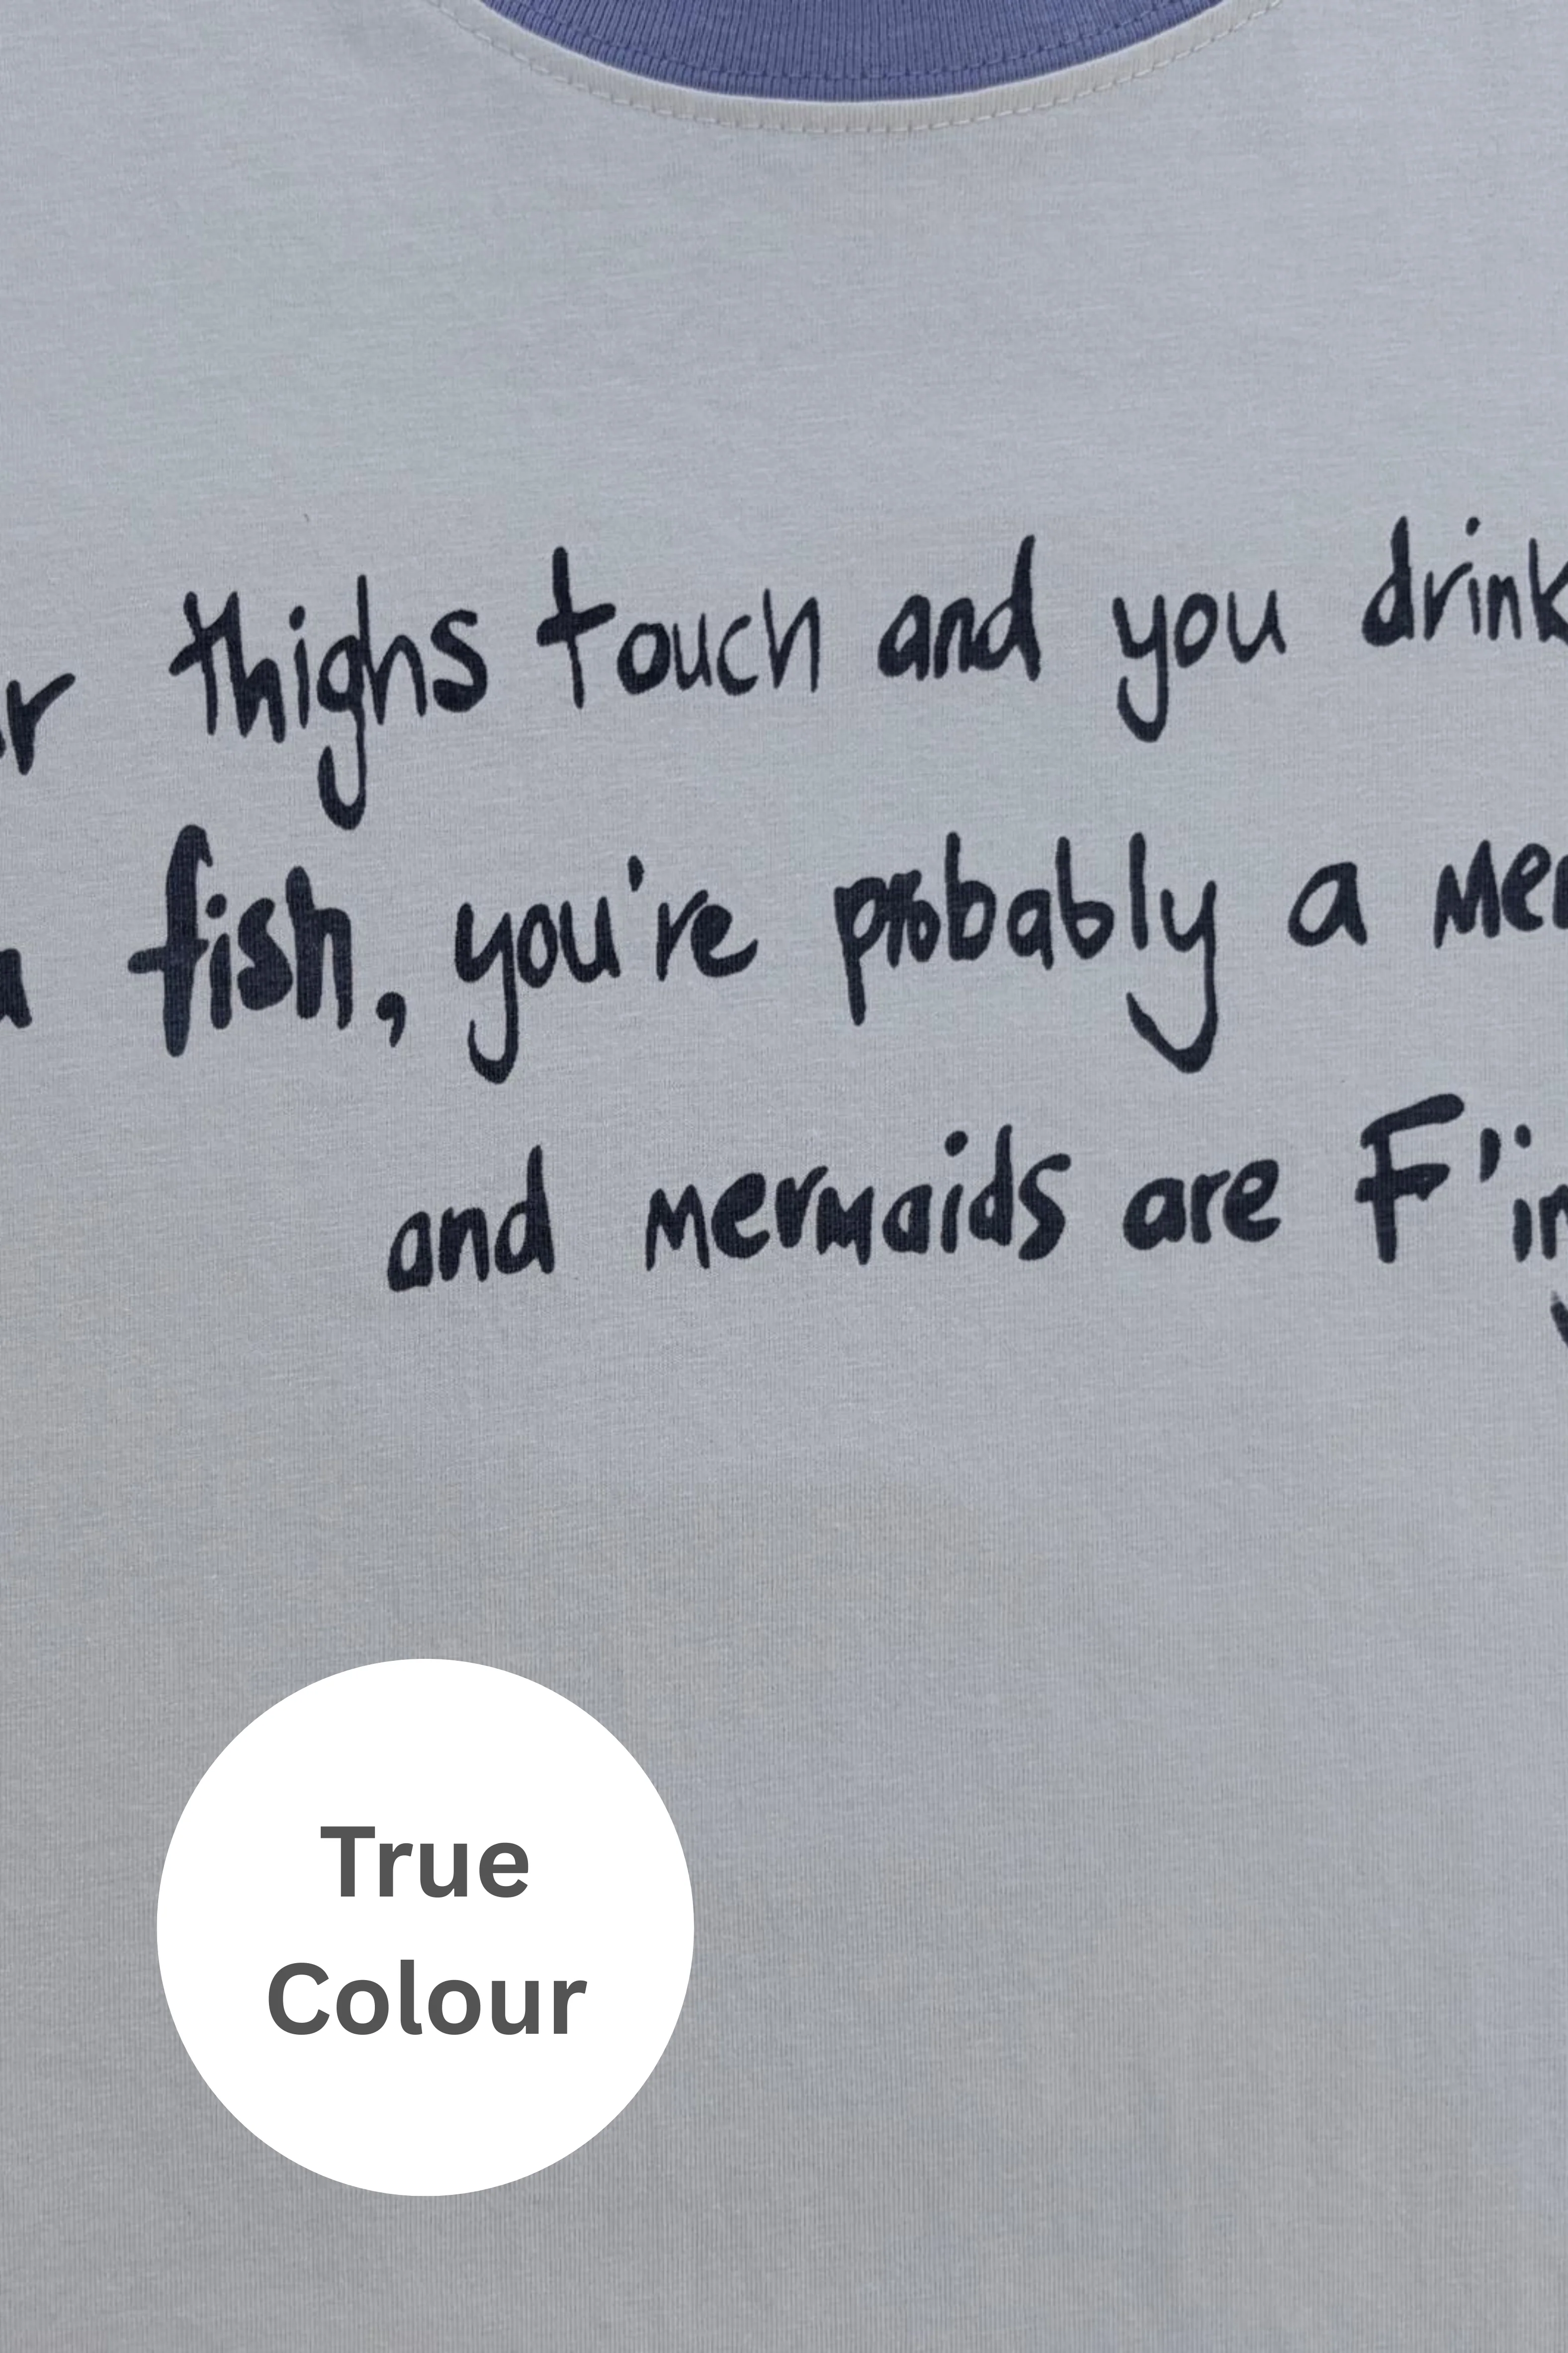 thighs touch and you drink
fish, you're probably a
and mermaids are F'in
True
Colour